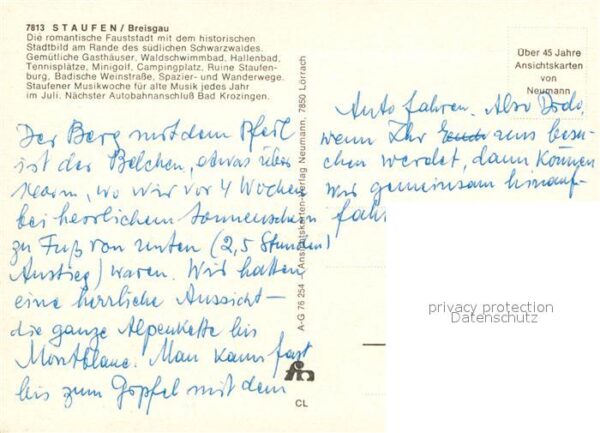 7813 STAUFEN / Breisgau
Die romantische Fauststadt mit dem historischen
Stadtbild am Rande des südlichen Schwarzwaldes.
Gemütliche Gasthäuser, Waldschwimmbad, Hallenbad,
Tennisplätze, Minigolf, Campingplatz, Ruine Staufen-
burg, Badische Weinstraße, Spazier- und Wanderwege.
Staufener Musikwoche für alte Musik jedes Jahr
im Juli. Nächster Autobahnanschluß Bad Krozingen.
Der Berg mit dem Pfeil
ist der Belchen, etwas über
1400m, wo wir vor 4 Wochen
bei herrlichem Sonnenschein
zu Fuß von unten (2,5 Stunden
Anstieg) waren. Wir hatten
eine herrliche Aussicht –
die ganze Alpenkette bis
Montblanc. Man kann fast
bis zum Gipfel mit dem
A-G 76 254 Ansichtskarten-Verlag Neumann, 7850 Lörrach
CL
Über 45 Jahre
Ansichtskarten
von
Neumann
Auto fahren. Also
wenn Ihr uns besu-
chen werdet, dann können
wir gemeinsam hinauf-
fahr
privacy protection
Datenschutz